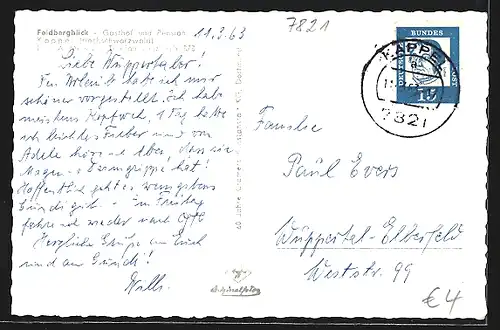 Feldbergblick - Gasthof und Pension
Kappel (Hochschwarzwald)
11.3.63
7821
Liebe Wuppertaler!
Den Urlaub hatte ich mir
schöner vorgestellt. Ich habe
meistens Kopfweh, 1 Tag hatte
ich leichtes Fieber und von
Adele höre ich eben, dass sie
Magen u. Darmgrippe hat!
Hoffentlich geht es wenigstens
Euch gut. - Am Freitag
fahre ich wieder nach
Herzliche Grüße an Euch
und an Gundi!
Willi.
DEUTSCHE
BUNDES
POST
15
KAPPEL
7821
Familie
Paul Evers
Wuppertal-Elberfeld
Weststr. 99
Originalfoto
€4